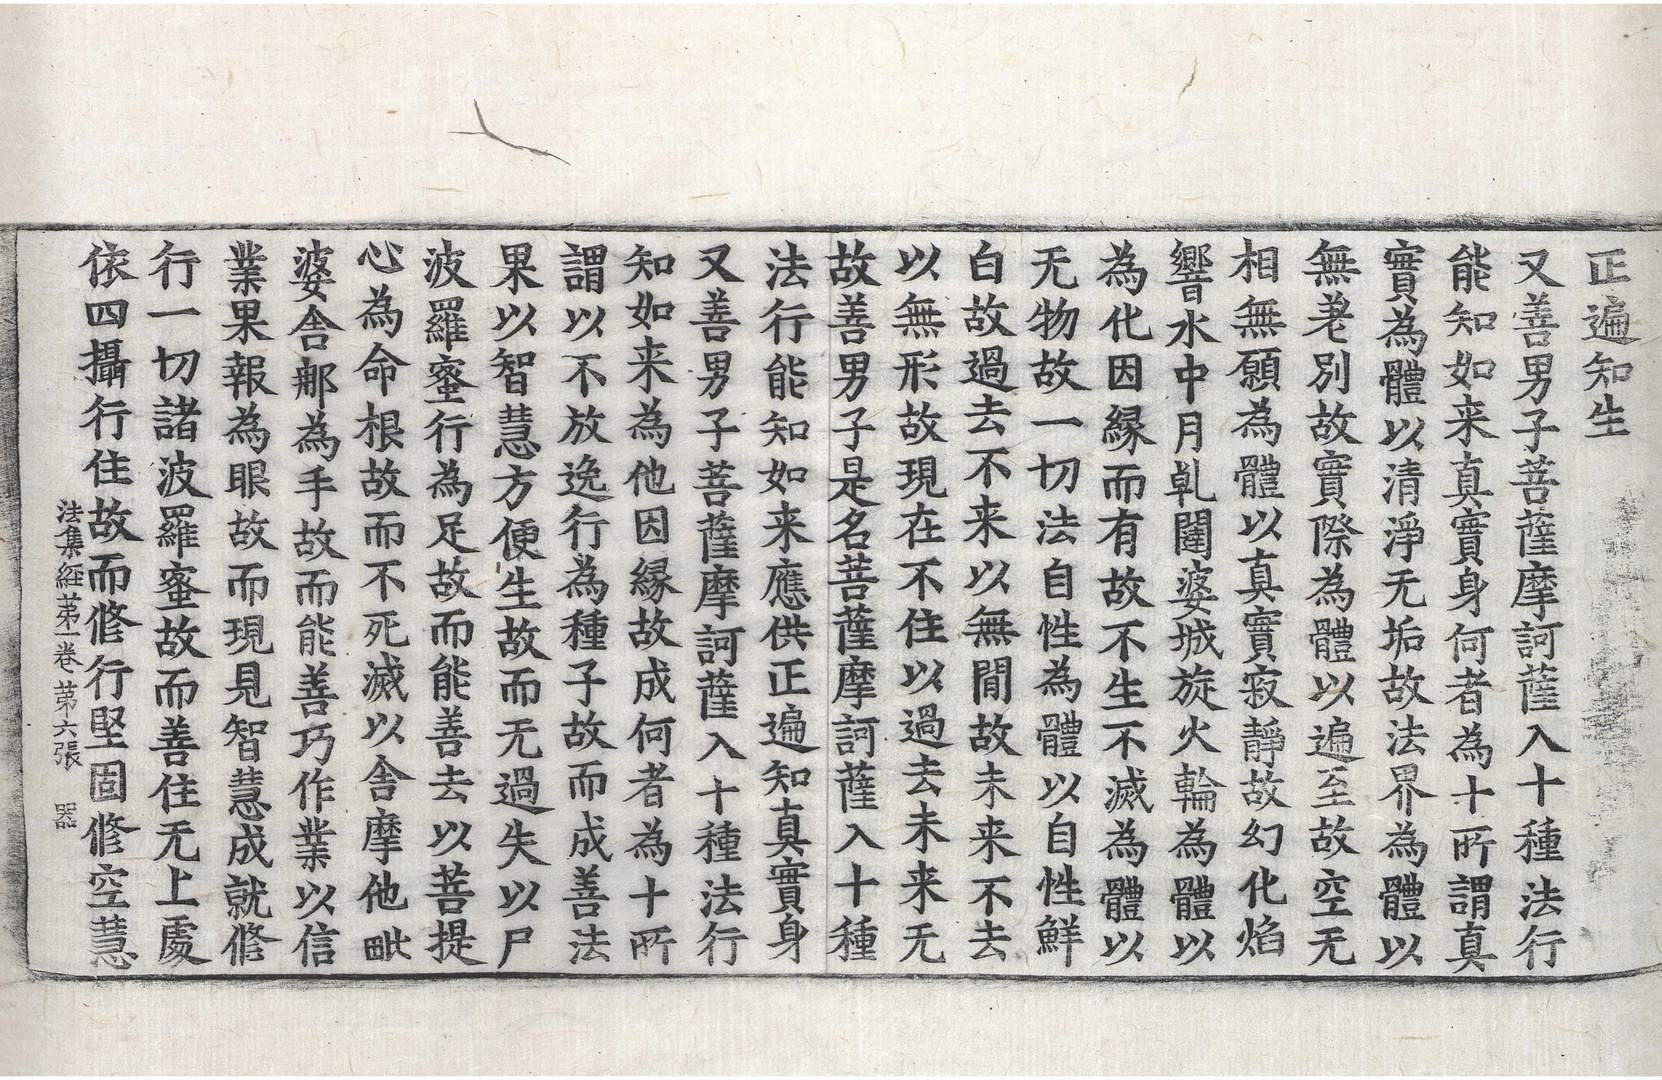 正遍知生
又善男子菩薩摩訶薩入十種法行
能知如来真實身何者為十所謂真
實為體以清淨无垢故法界為體以
無差別故實際為體以遍至故空无
相無願為體以真實寂靜故幻化焰
響水中月乹闥婆城旋火輪為體以
為化因縁而有故不生不滅為體以
无物故一切法自性為體以自性鮮
白故過去不来以無閒故未来不去
以無形故現在不住以過去未来无
故善男子是名菩薩摩訶薩入十種
法行能知如来應供正遍知真實身
又善男子菩薩摩訶薩入十種法行
知如来為他因縁故成何者為十所
謂以不放逸行為種子故而成善法
果以智慧方便生故而无過失以尸
波羅蜜行為足故而能善去以菩提
心為命根故而不死滅以舍摩他毗
婆舎那為手故而能善巧作業以信
業果報為眼故而現見智慧成就修
行一切諸波羅蜜故而善住无上處
依四攝行住故而修行堅固修空慧
法集経苐一卷 苐六張 器